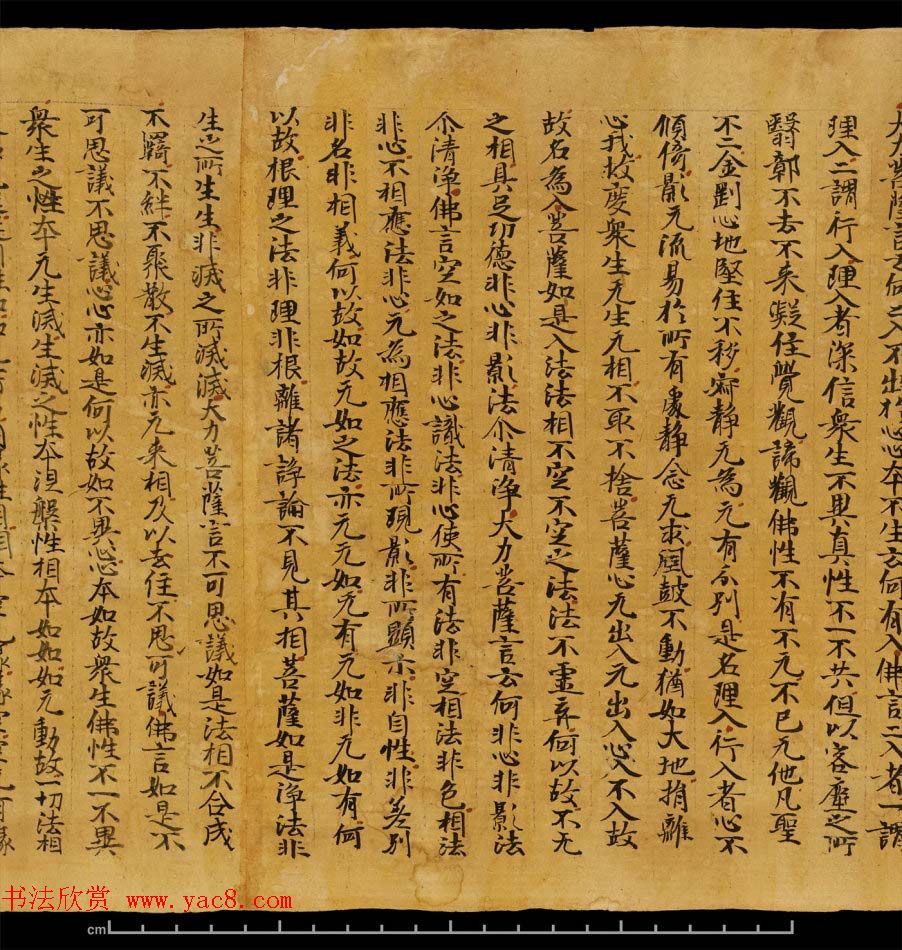 大力菩薩言云何二入不出於心心本不生云何有入佛言二入者一謂
理入二謂行入理入者深信衆生不異真性不一不共但以客塵之所
翳鄣不去不来凝住覺觀諦觀佛性不有不无不已无他凡聖
不二金剛心地堅住不移寂静无為无有分別是名理入行入者心不
傾倚影无流易於所有處静念无求風鼓不動猶如大地捐離
心我救度衆生无生无相不取不捨菩薩心无出入无出入心入不入故
故名為入菩薩如是入法法相不空不空之法法不虚弃何以故不无
之相具足功德非心非影法尒清浄大力菩薩言云何非心非影法
尒清浄佛言空如之法非心識法非心使所有法非空相法非色相法
非心不相應法非心无為相應法非所現影非所顯示非自性非差別
非名非相義何以故如故无如之法亦无无如无有无如非无如有何
以故根理之法非理非根離諸諍論不見其相菩薩如是浄法非
生之所生生非滅之所滅滅大力菩薩言不可思議如是法相不合成
不羇不絆不聚散不生滅亦无来相及以去住不思可議佛言如是不
可思議不思議心心亦如是何以故如不異心心本如故衆生佛性不一不異
衆生之性本无生滅生滅之性本涅槃性相本如如如无動故一切法相
书法欣赏 www.yac8.com
cm